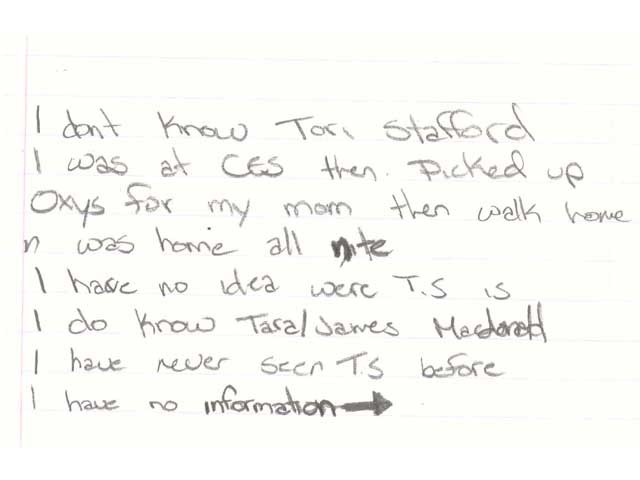 I dont know Tori Stafford
I was at CES then Picked up
Oxys for my mom then walk home
n was home all nite
I have no idea were T.S is
I do know Tara/James Macdonald
I have never seen T.S before
I have no information →